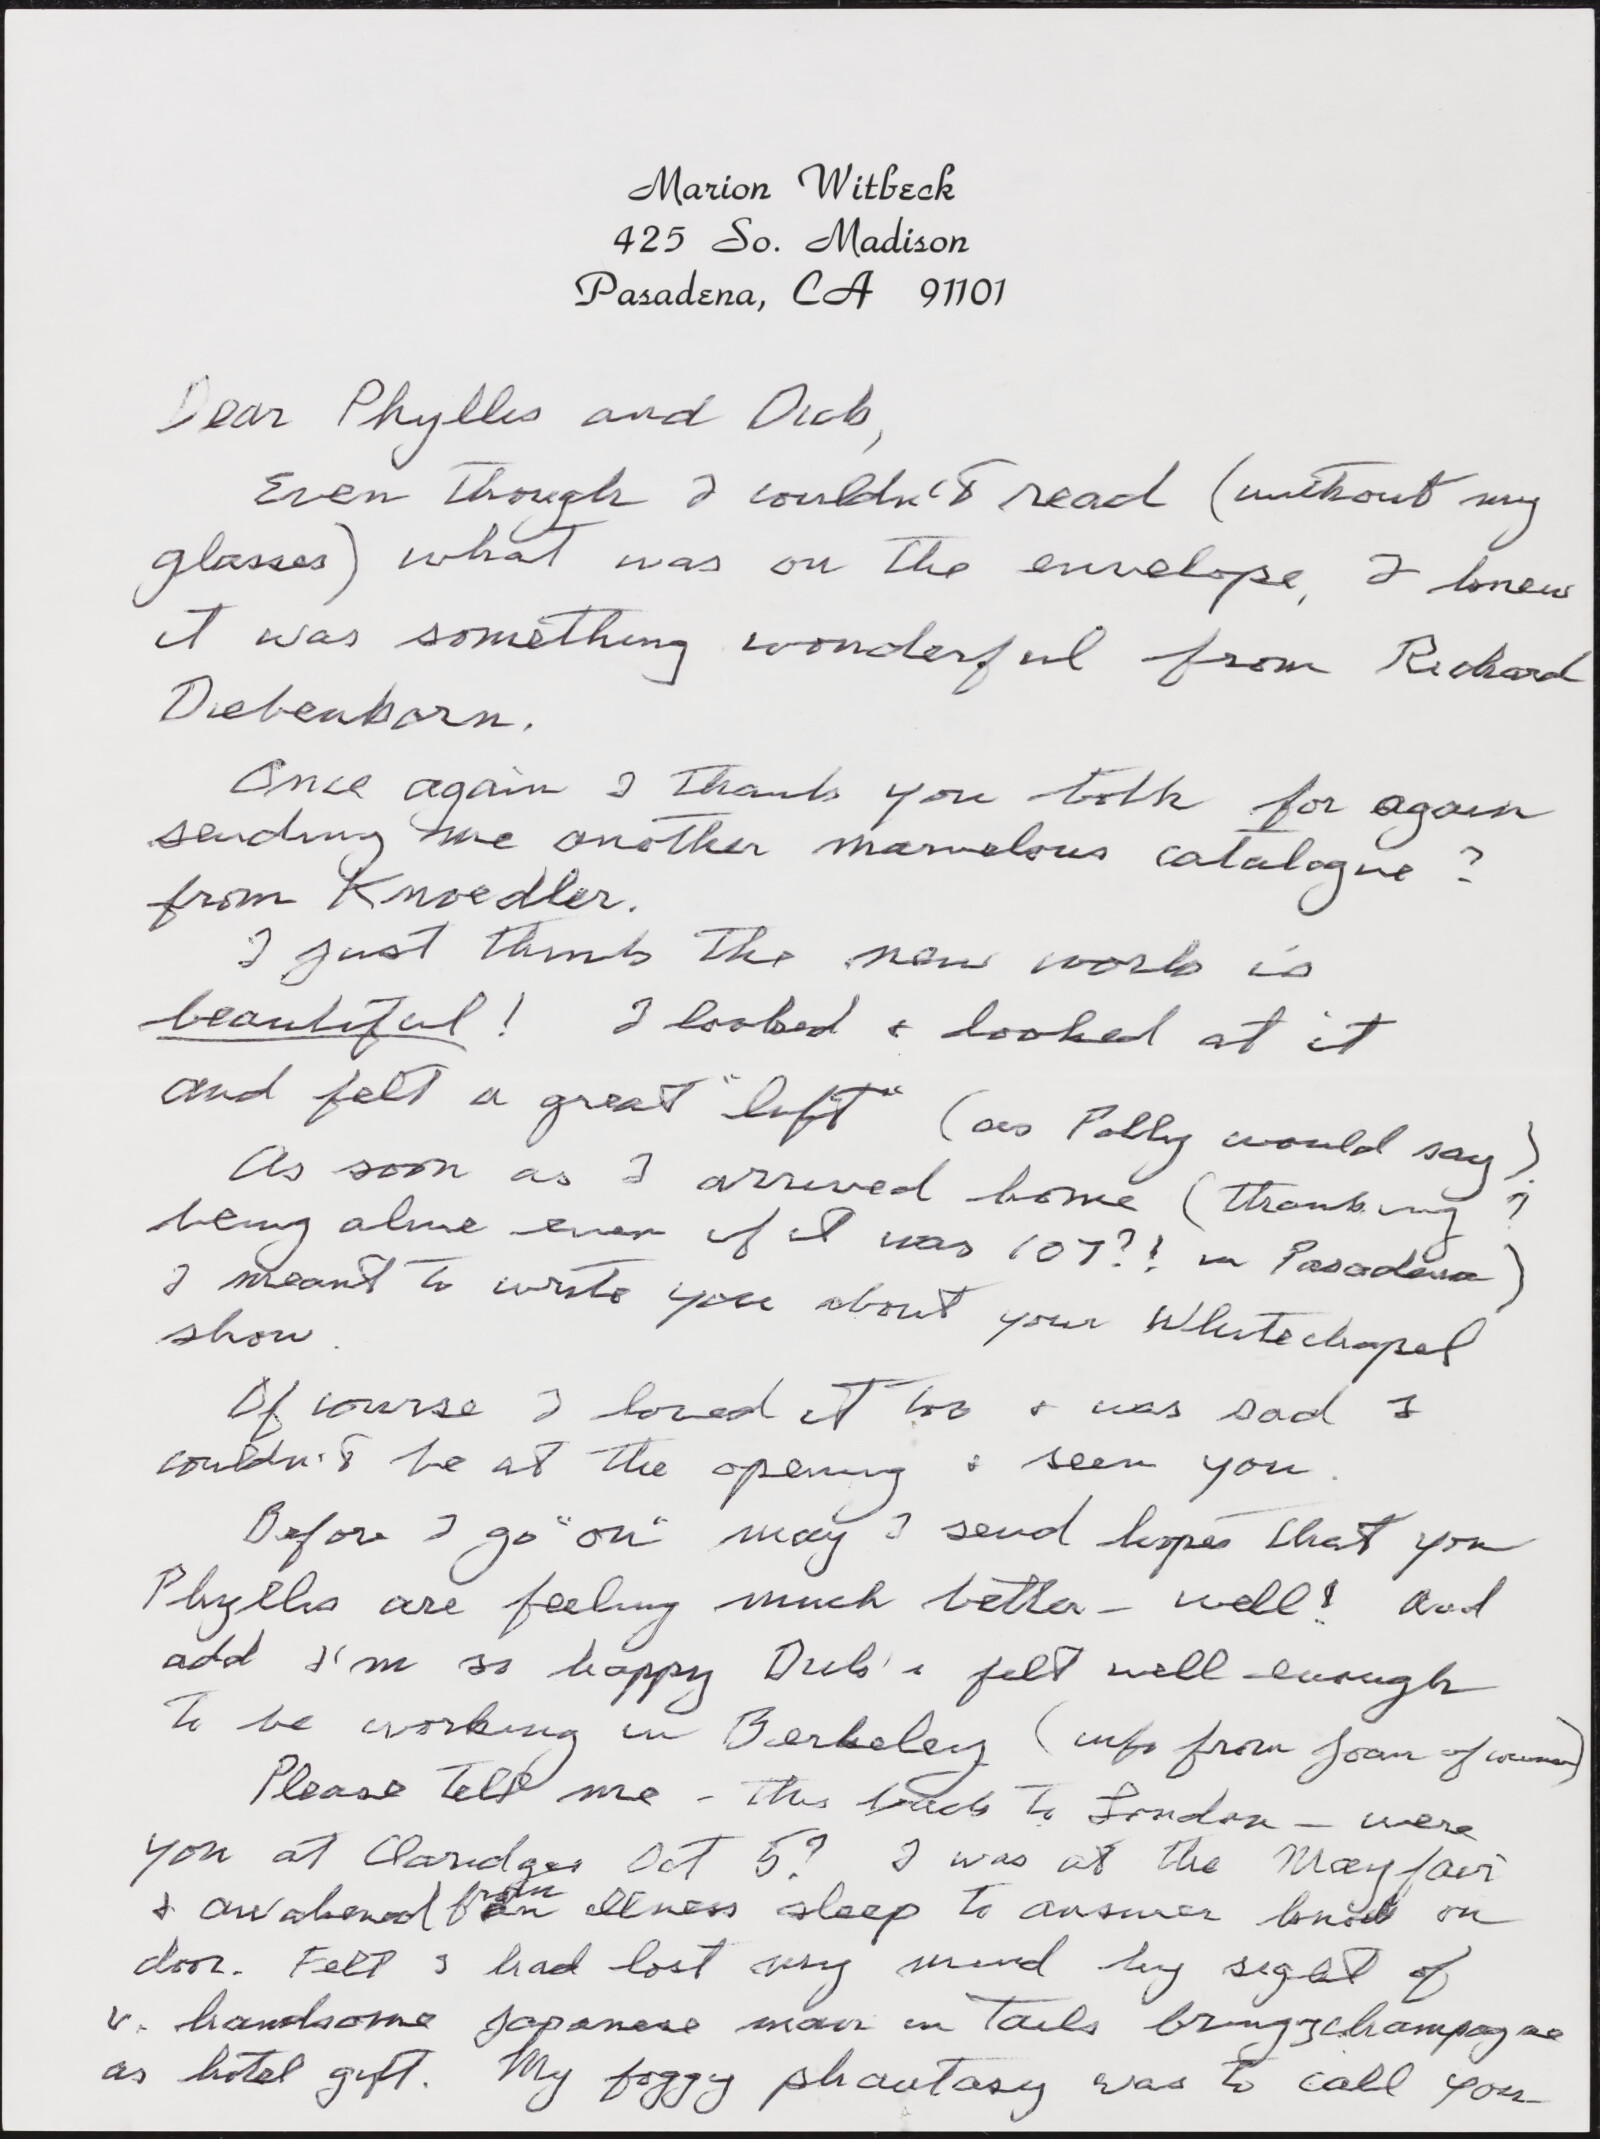 Marion Witbeck
425 So. Madison
Pasadena, CA 91101
Dear Phyllis and Dick,
Even though I couldn't read (without my
glasses) what was on the envelope, I knew
it was something wonderful from Richard
Diebenkorn.
Once again I thank you both for again
sending me another marvelous catalogue?
from Knoedler.
I just think the new work is
beautiful! I looked & looked at it
and felt a great "lift" (as Polly would say)
As soon as I arrived home (thanking ?
being alive even if it was 107?! in Pasadena)
I meant to write you about your Whitechapel
show.
Of course I loved it too & was sad I
couldn't be at the opening & seen you.
Before I go "on" may I send hopes that you
Phyllis are feeling much better - well! And
add I'm so happy Dick's felt well enough
to be working in Berkeley (info from Joan of course)
Please tell me - this back to London - were
you at Claridges Oct 5? I was at the Mayfair
& awakened from illness sleep to answer knock on
door. Felt I had lost my mind by sight of
v. handsome Japanese man in tails bringing champagne
as hotel gift. My foggy phantasy was to call you